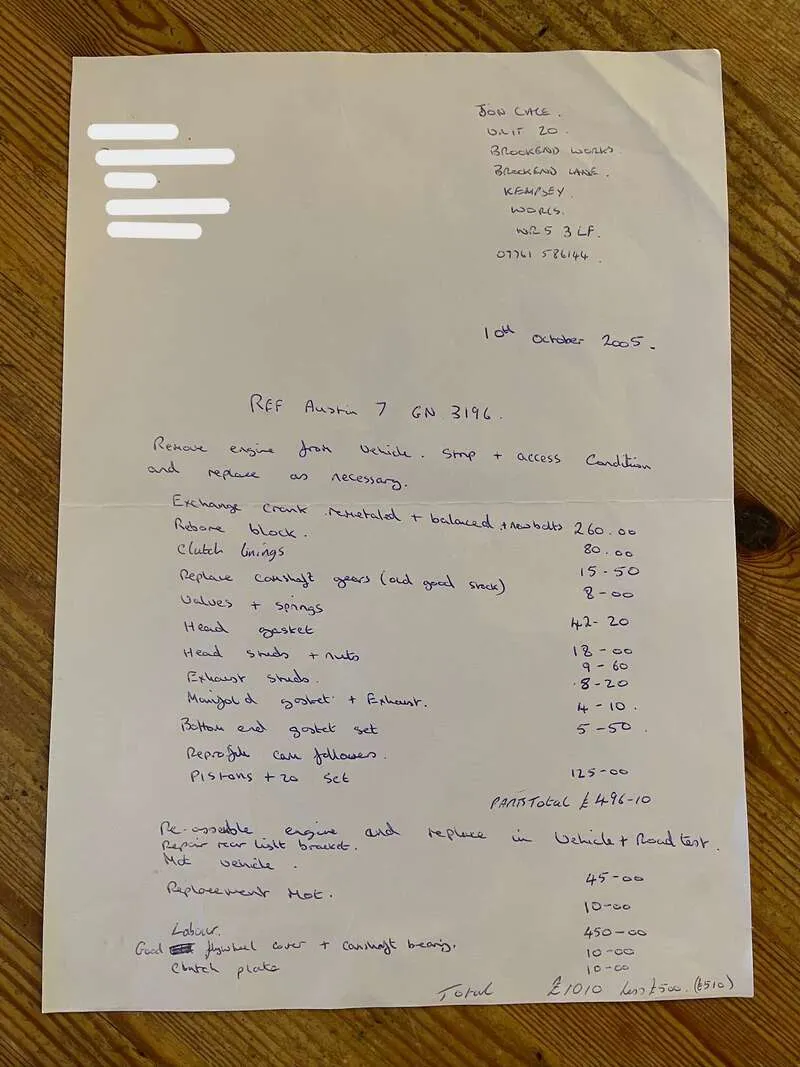 JON CALE.
UNIT 20.
BROCKEND WORKS.
BROCKEND LANE.
KEMPSEY.
WORCS.
WR5 3LF.
07761 586144.
10th October 2005.
REF Austin 7 GN 3196.
Remove engine from Vehicle. Strip + access Condition
and replace as necessary.
Exchange Crank remetaled + balanced + new bolts 260.00
Rebore block. 80.00
Clutch linings 15-50
Replace camshaft gears (old good stock) 8-00
Valves + springs 42-20
Head gasket 18-00
Head studs + nuts 9-60
Exhaust studs. 8-20
Manifold gasket + Exhaust. 4-10.
Bottom end gasket set 5-50.
Reprofile cam followers.
PISTONS +20 Set 125-00
PARTS Total £496-10
Re-assemble engine and replace in Vehicle + Road test.
Repair rear light bracket.
Mot vehicle. 45-00
Replacement Mot. 10-00
Labour. 450-00
Good flywheel cover + camshaft bearing. 10-00
Clutch plate 10-00
Total £1010 Less £500. (£510)